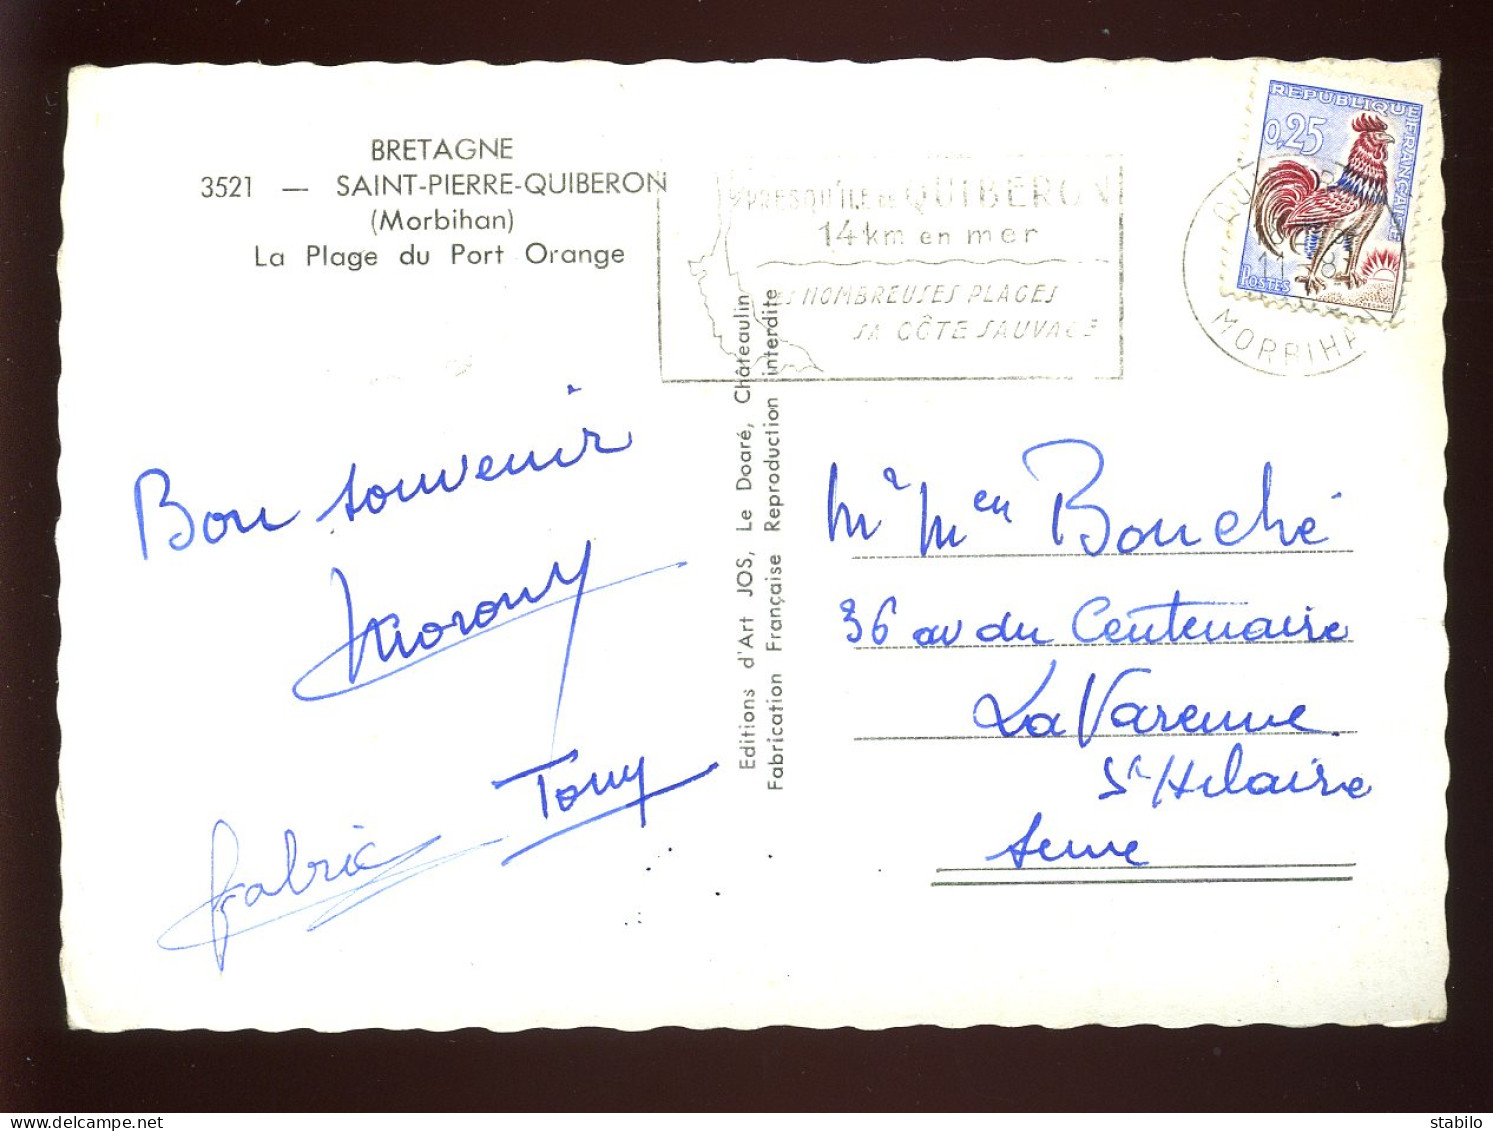 BRETAGNE
3521 — SAINT-PIERRE-QUIBERON
(Morbihan)
La Plage du Port Orange
PRESQU'ÎLE DE QUIBERON
14 km en mer
SES NOMBREUSES PLAGES
SA CÔTE SAUVAGE
REPUBLIQUE FRANÇAISE
0,25
POSTES
MORBIHAN
Bon souvenir
Tony
Fabrice
Editions d'Art JOS, Le Doaré, Châteaulin
Fabrication Française Reproduction interdite
Mr Men Bouché
36 av du Centenaire
La Varenne
St Hilaire
Seine
stabilo